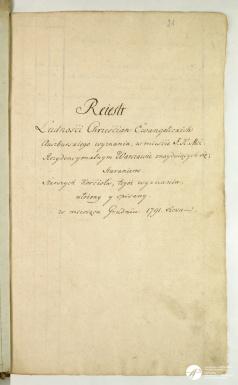 Reiestr
Ludności Chrześcian Ewangelickich
Auszburskiego wyznania, w mieście J. K. Mci
Rezydencyonalnym Warszawie znayduiących się,
Staraniem
Starszych Kościoła, tegoż wyznania,
ułożony y spisany
w miesiącu Grudniu 1791. Roku